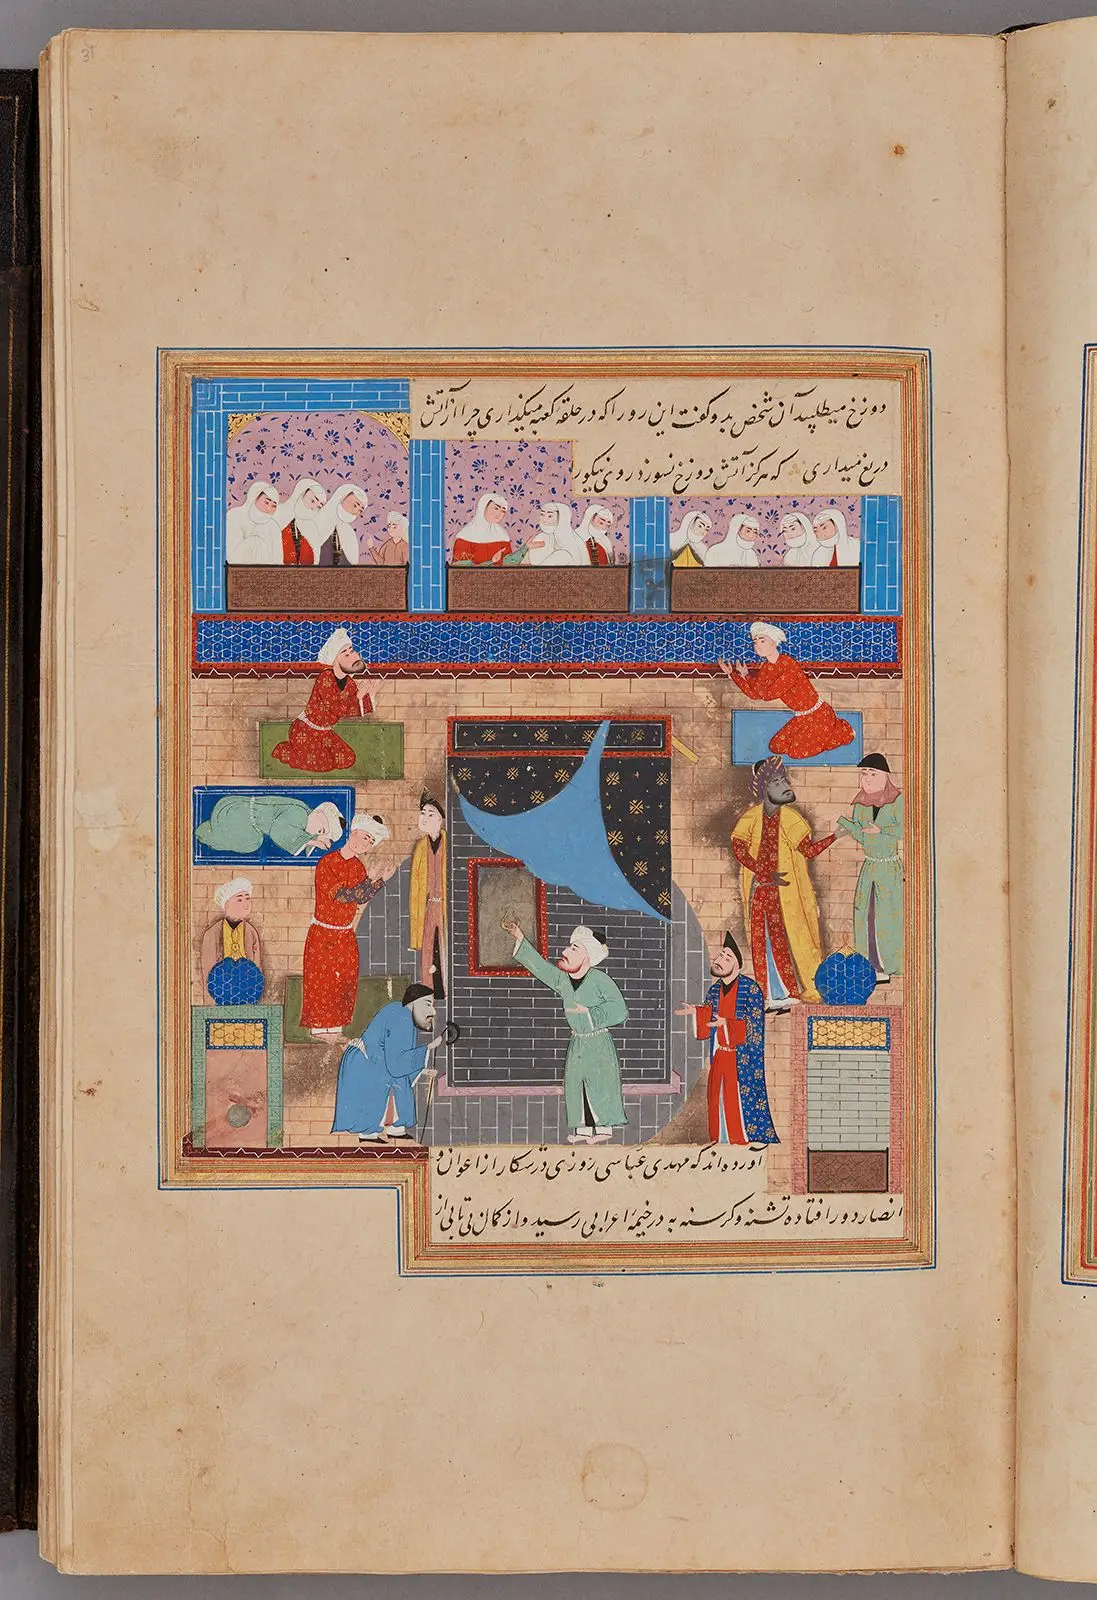 31
دوزخ میطلبید آن شخص بدو گفت این رو را که در حلقه کعبه میگذاری چرا از آتش
دریغ میداری که هرگز آتش دوزخ نسوزد روی نیکو را
آورده‌اند که مهدی عباسی روزی در شکار از اعوان و
انصار دور افتاده تشنه و گرسنه به در خیمه اعرابی رسید و از کمال بی تابی از